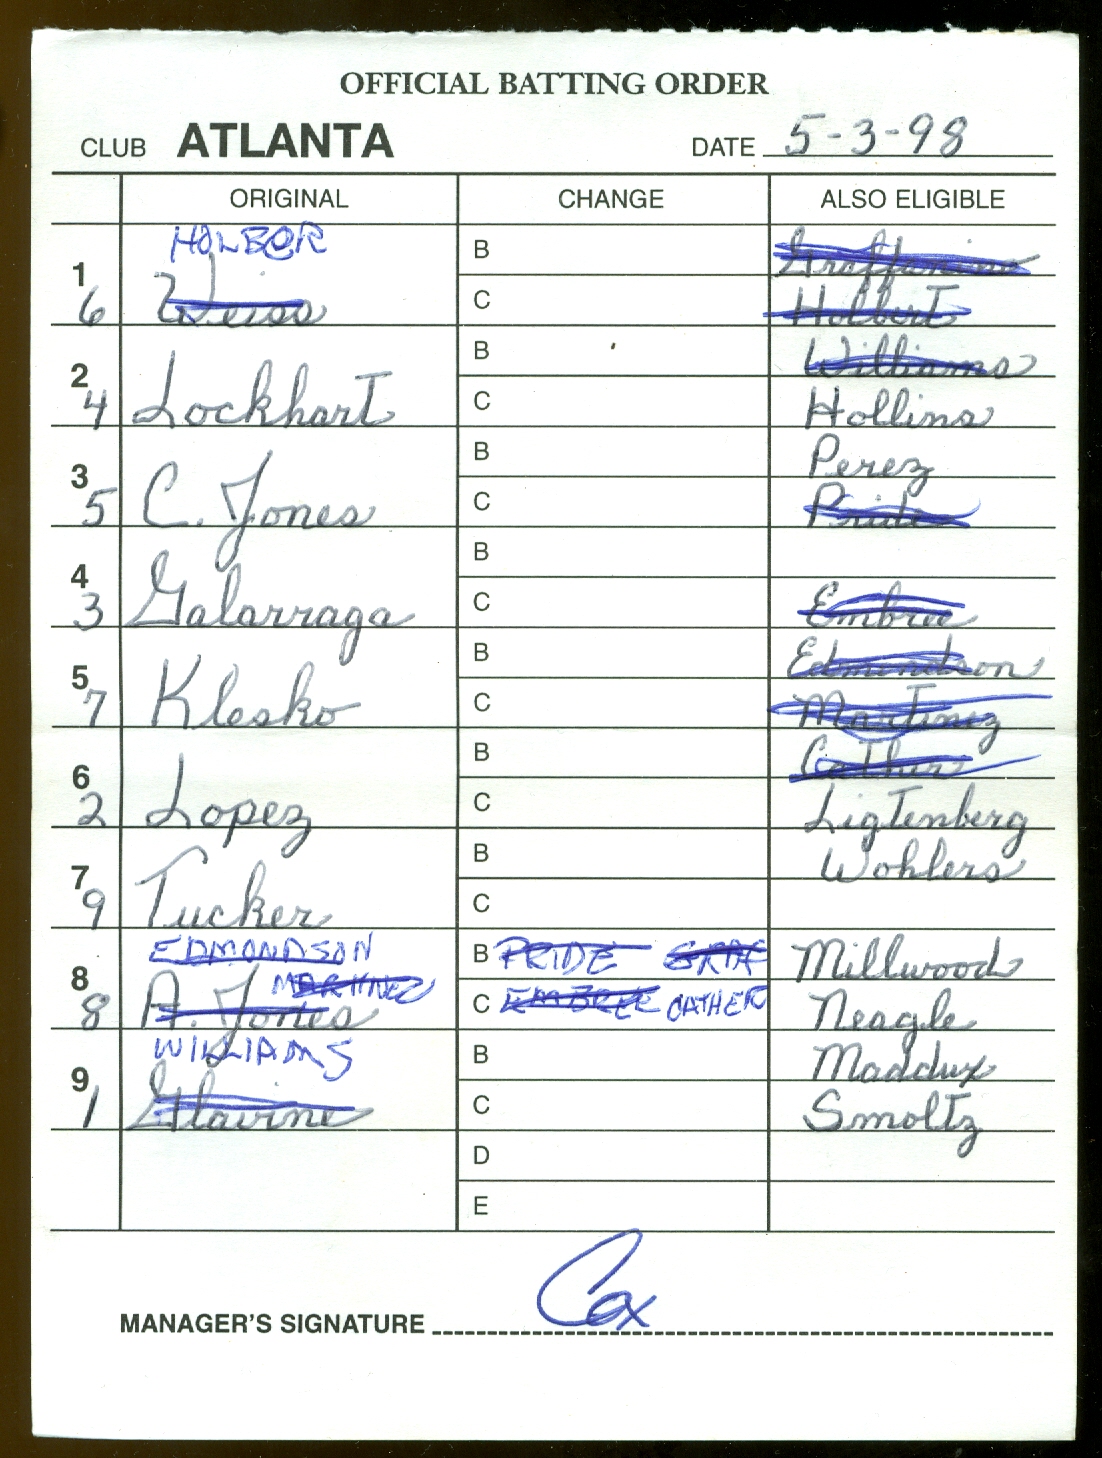 OFFICIAL BATTING ORDER
CLUB ATLANTA DATE 5-3-98
ORIGINAL CHANGE ALSO ELIGIBLE
HOLBER B Graffanino
1 6 Weiss C Holbert
B Williams
2 4 Lockhart C Hollins
B Perez
3 5 C. Jones C Pride
B
4 3 Galarraga C Embree
B Edmondson
5 7 Klesko C Martinez
B Cather
6 2 Lopez C Ligtenberg
B Wohlers
7 9 Tucker C
EDMONDSON B PRIDE GRAF Millwood
MARTINEZ
8 8 A. Jones C EMBREE CATHER Neagle
WILLIAMS B Maddux
9 1 Glavine C Smoltz
D
E
Cox
MANAGER'S SIGNATURE